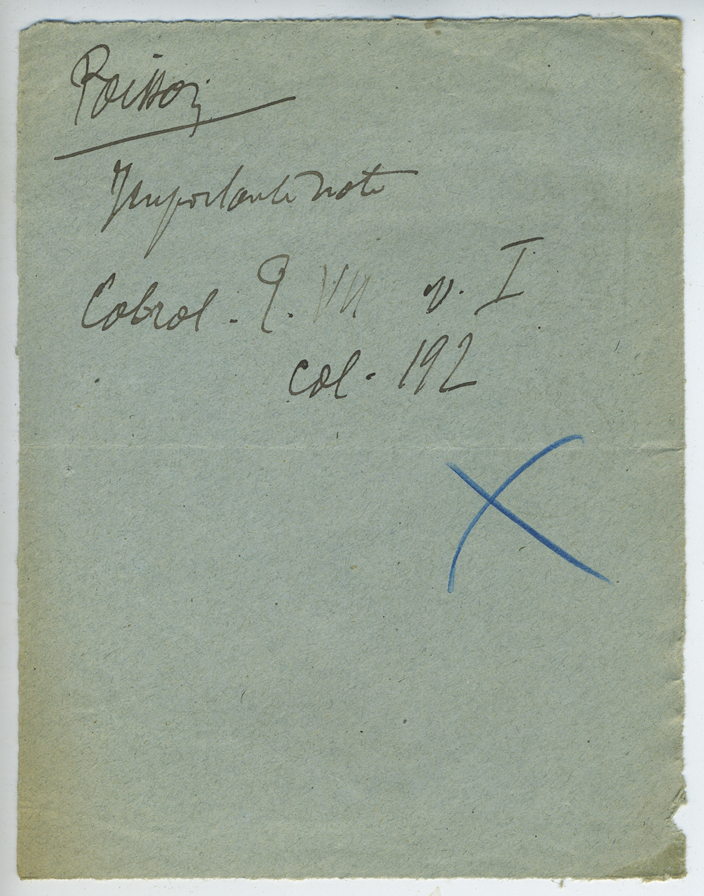 Poisson
Importante note
Cabrol. T. VII v. I
col. 192